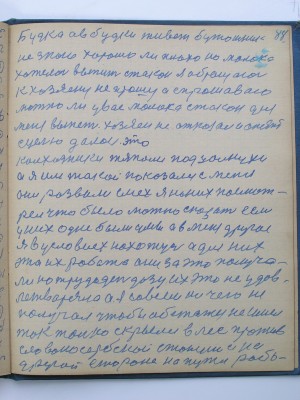 Будка а в будки живет бутошник 88
не знаю хорошо ли плохо но молоко
хотелос выпит стакан я обращаюс
к хозяину не прошу а спрашиваю
можно ли у вас молока стакан для
меня выпет хозяин не отказал а с этой
сценю делал это
колхозники тяпали подсолнухи
а я им такой показалс с меня
они розвели смех я на них посмот
рел что было можно сказат если
у них одне были умы а в меня другая
я в условиех нахожуся а для них
эта их работа они за это получа
ли но трудодет дозу их это не удов
летворяло а я совсем ни чего не
получал чтобы обстояту не
так только скрылся в лес против
славяносербской станции и на
другой стороне на пути рабо